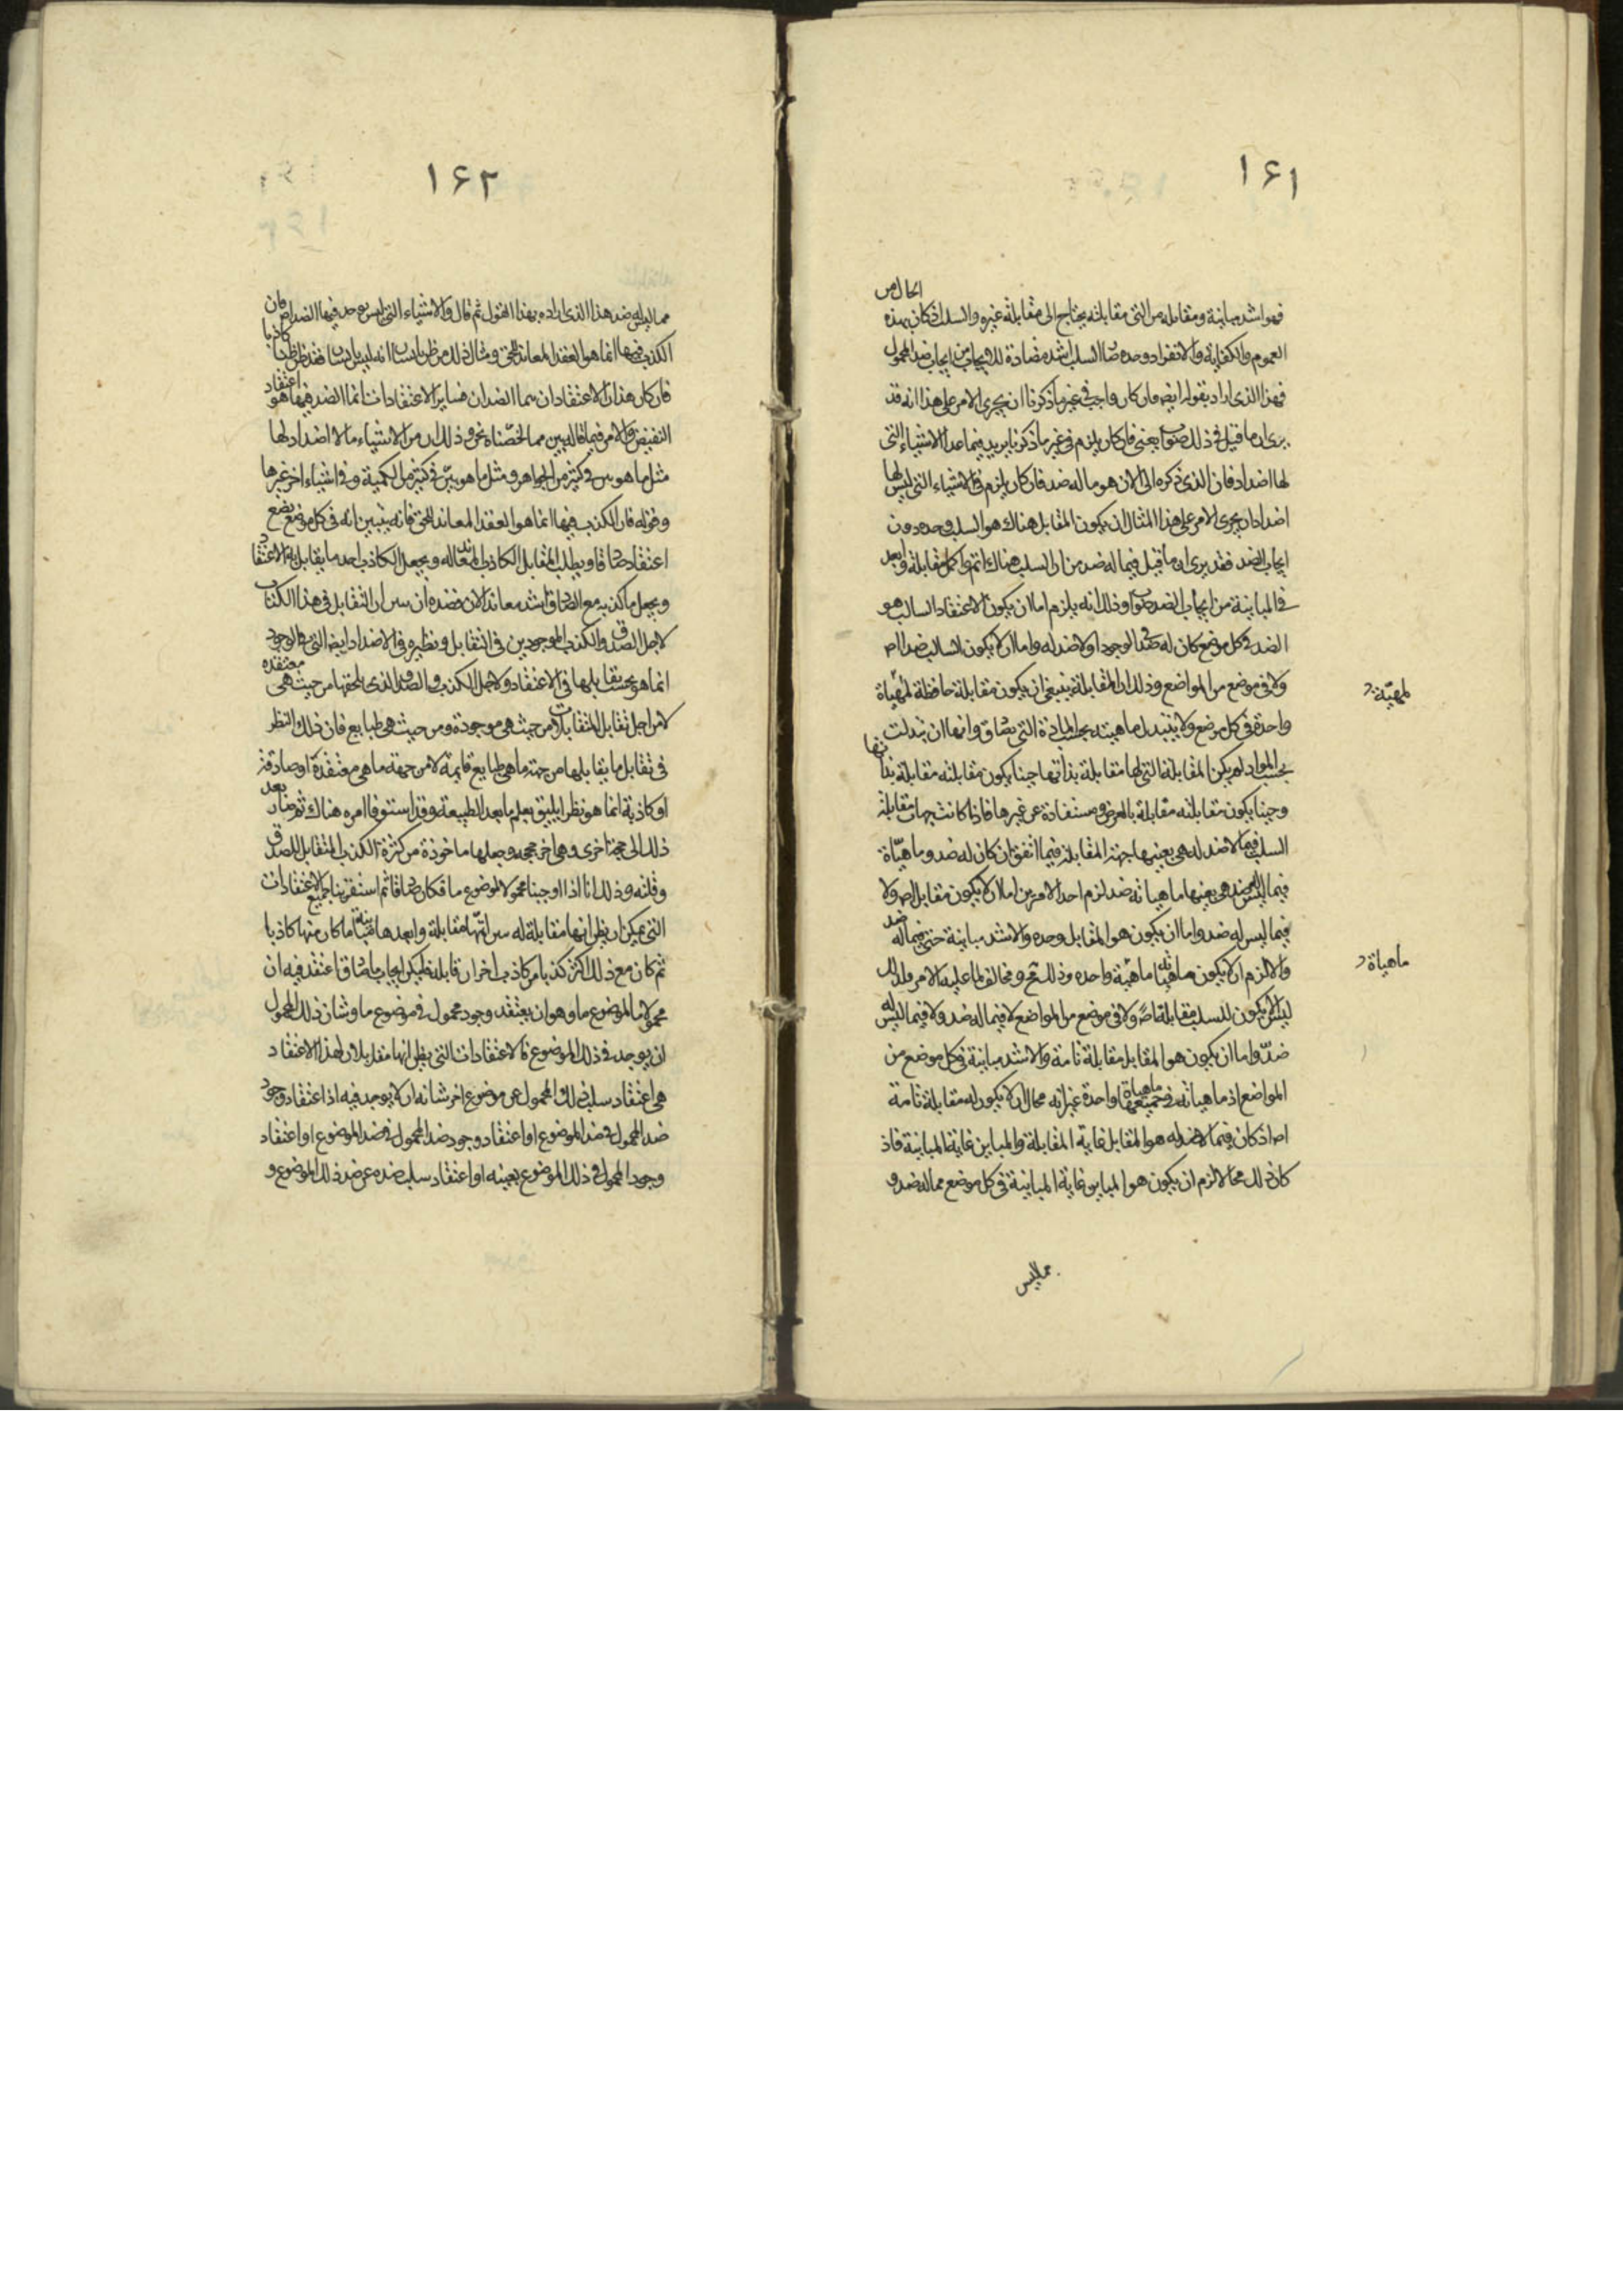 ١٦١
الحال من
فهو اشد مباينة ومقابلة من التى مقابلته يحتاج الى مقابلة غيره والسلب اذ كان بهذه
العموم والكفاية والانفراد وحده صار السلب اشد مضادة للايجاب من ايجاب ضد المحمول
فهذا الذى اراد بقوله ايضا فان كان واجب فى غير ما ذكرنا ان يجرى الامر على هذا انه قد
يرى ان ما قيل فى ذلك صواب يعنى فان كان يلزم فى غير ما ذكرنا يريد فيما عدا الاشياء التى
لها اضداد فان الذى ذكره الى الان هو ما له ضد فان كان يلزم فى الاشياء التى ليس لها
اضداد ان يجرى الامر على هذا المثال ان يكون المقابل هناك هو السلب وحده دون
ايجاب الضد فقد يرى ان ما قيل فيما له ضد من ان السلب هناك اتم واكمل مقابلة وابعد
فى المباينة من ايجاب الضد صواب وذلك انه يلزم اما ان يكون الاعتقاد السالب هو
الضد فى كل موضع كان له ضد فى الوجود او لا ضد له واما ان لا يكون السالب ضدا اصلا
ولا فى موضع من المواضع وذلك ان المقابلة ينبغى ان يكون مقابلة حافظة لمهياة
لمهيّة د
واحدة فى كل موضع ولا يتبدل ماهيته بحسب المادة التى يصادق وانها ان تبدلت
بحسب المواد لم يكن المقابلة التى لها مقابلة بذاتها حينا يكون مقابلته مقابلة بذاتها
وحينا يكون مقابلته مقابلة بالعرض ومستفادة عن غيرها فاذا كانت جهات مقابلة
السلب فيما لا ضد له هى بعينها جهة المقابلة فيما اتفق ان كان له ضد وماهياة
فيما ليس له ضد هى بعينها ماهياته ضد لزم احد الامرين اما ان لا يكون مقابل اصلا ولا
فيما ليس له ضد واما ان يكون هو المقابل وحده والاشد مباينة حتى فيما له ضد
والا لزم ان لا يكون ماهياته ماهية واحدة وذلك مح ومخالف لما عليه الامر ولذلك
ماهياة د
ليس ان يكون للسلب مقابلة اصلا ولا فى موضع من المواضع لا فيما له ضد ولا فيما ليس له
ضدّ واما ان يكون هو المقابل مقابلة تامة والاشد مباينة فى كل موضع من
المواضع اذ ماهياته فى جميعها ماهياة واحدة غير انه محال ان لا يكون له مقابلة تامة
اصلا اذ كان فيما لا ضد له هو المقابل غاية المقابلة والمباين غاية المباينة فاذ
كان ذلك محالا لزم ان يكون هو المباين غاية المباينة فى كل موضع مما له ضد و
مما ليس
١٦٢
مما ليس له ضد هذا الذى اراده بهذا القول ثم قال والاشياء التى ليس يوجد فيها الضد اصلا فان
الكذب فيها انما هو العقد المعاند للحق ومثال ذلك من ظن بانسان انه ليس بانسان فقد ظن ظنا كاذبا
فان كان هذان الاعتقادان هما الضدان فساير الاعتقادات انما الضد فيها هو اعتقاد
النقيض والامر فيما قاله بين مما لخصناه نحن وذلك ان من الاشياء ما لا اضداد لها
مثل ما هو بين فى كثير من الجواهر ومثل ما هو بيّن فى كثير من الكمية وفى اشياء اخر غيرها
وقوله فان الكذب فيها انما هو العقد المعاند للحق فانه يتبين انه فى كل موضع يضع
اعتقاد صادقا ويطلب المقابل الكاذب المعاند له ويجعل الكاذب احد ما يقابل به الاعتقاد
ويجعل ما كذبه مع الصادق اشد معاندا لان قصده ان يبين ان التقابل فى هذا الكتاب
لاجل الصدق والكذب الموجودين فى التقابل ونظيره فى الاضداد ايضا التى فى الوجود
انما هو بحسب تقابلها فى الاعتقاد ولاجل الكذب والصدق الذى يلحقها من حيث هى معتقدة
لا من اجل تقابل المتقابلات من حيث هى موجودة ومن حيث هى طبايع فان ذلك والنظر
فى تقابل ما يقابلها من جهة ما هى طبايع قايمة لا من جهة ما هى معتقدة او صادقة
او كاذبة انما هو نظر يليق بعلم ما بعد الطبيعة وقد استوفا امره هناك ثم صار بعد
ذلك الى حجة اخرى وهى اخر حججه وجعلها ماخوذة من كثرة الكذب المتقابل للصدق
وقلته وذلك انا اذا اوجبنا محمولا لموضوع ما فكان صادقا ثم استقرينا جميع الاعتقادات
التى يمكن ان يظن انها مقابلة له من اتمّها مقابلة وابعدها مباينة ما كان منها كاذبا
ثم كان مع ذلك اكثر كذبا من كاذب اخر ان قابله فليكن ايجاب ما صادقا اعتقد فيه ان
محمولا ما لموضوع ما وهو ان يعتقد وجود محمول فى موضوع ما وشان ذلك المحمول
ان يوجد فى ذلك الموضوع فالاعتقادات التى يظن انها مقابلات لهذا الاعتقاد
هى اعتقاد سلب ذلك المحمول عن موضوع اخر شانه ان لا يوجد فيه اذا اعتقاد وجود
ضد المحمول فى ضد الموضوع او اعتقاد وجود ضد المحمول فى ضد الموضوع او اعتقاد
وجود المحمول فى ذلك الموضوع بعينه او اعتقاد سلب ضده عن ضد ذلك الموضوع و